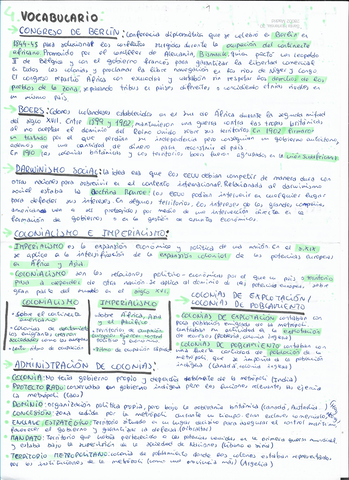 VOCABULARIO
→ CONGRESO DE BERLÍN: Conferencia diplomática que se celebró en Berlín en
1884-85 para solucionar los conflictos surgidos durante la ocupación del continente
africano. Promovido por el canciller de Alemania, Bismarck
I de Bélgica y con el gobierno francés para garantizar la libertad comercial
a todas las colonias y proclamar la libre navegación en los ríos de Níger y Congo
El congreso repartió África con y sin respetar los
pueblos de la zona, separando tribus en países diferentes o tribus rivales en
un mismo país
→ BOERS: colonos holandeses establecidos en el sur de África durante la segunda mitad
del siglo XVII. Entre 1899 y 1902, mantuvieron una guerra contra las tropas británicas
al no aceptar el dominio del Reino Unido sobre su territorio. En 1902 firmaron
un tratado por el que perdían su independencia pero conseguían un gobierno autónomo,
además de una cantidad de dinero para reconstruir el país.
En 1910 las colonias británicas y los territorios boers fueron agrupados en la Unión Sudafricana
→ DARWINISMO SOCIAL: la idea era que los EEUU debían competir de manera dura con
otras naciones para sobrevivir en el contexto internacional. Relacionada al darwinismo
social estaba la doctrina Monroe: los EEUU podían intervenir en cualquier lugar
para defender sus intereses. En algunos territorios, los intereses de las grandes compañías
americanas eran protegidos por medio de una intervención directa en la
formación de gobiernos o en la gestión de asuntos económicos.
→ COLONIALISMO E IMPERIALISMO:
- IMPERIALISMO es la expansión económica y política de una nación. En el s.XIX
se aplica a la intensificación de la expansión colonial de las potencias europeas
en África y Asia
- COLONIALISMO son las relaciones político-económicas por el que un país o territorio
pasa a depender de otra nación. Se aplica al dominio de las potencias europeas, sobre
gran parte del mundo en el siglo
COLONIALISMO
- Sobre el continente americano
- Colonias de
sociedades como las europeas
- Lento ritmo de ocupación
IMPERIALISMO
- Sobre África, Asia y el Pacífico
- Territorios de ocupación
social y economía
- Ritmo de ocupación rápido
COLONIAS DE EXPLOTACIÓN/
COLONIAS DE POBLAMIENTO
- COLONIAS DE EXPLOTACIÓN contaban con
poca población emigrada de la metrópoli
centraban su actividad en la explotación
de recursos
- COLONIAS DE POBLAMIENTO contaban con
una fuerte cantidad de población de la
metrópoli, que se imponía a la población
indígena (Canadá
→ ADMINISTRACIÓN DE COLONIAS:
- COLONIA: No tenía gobierno propio y dependía de la metrópoli (India)
- PROTECTORADO: conservaban un gobierno indígena pero las funciones relevantes las ejercía
la metrópoli
- DOMINIO: organización política propia, pero bajo la soberanía británica (Canadá, Australia)
- CONCESIÓN: zona cedida por la metrópoli durante un tiempo
- ENCLAVE ESTRATÉGICO: Territorio situado en un lugar decisivo para asegurar el control marítimo,
favorecer el gobierno y garantizar la defensa (Gibraltar)
- MANDATO: Territorio que había pertenecido a las potencias vencidas en la primera guerra mundial,
y estaba bajo la supervisión de la Sociedad de Naciones
- TERRITORIO METROPOLITANO: colonia de poblamiento donde los colonos estaban representados
por las instituciones de la metrópoli (como una provincia más) (Argelia)